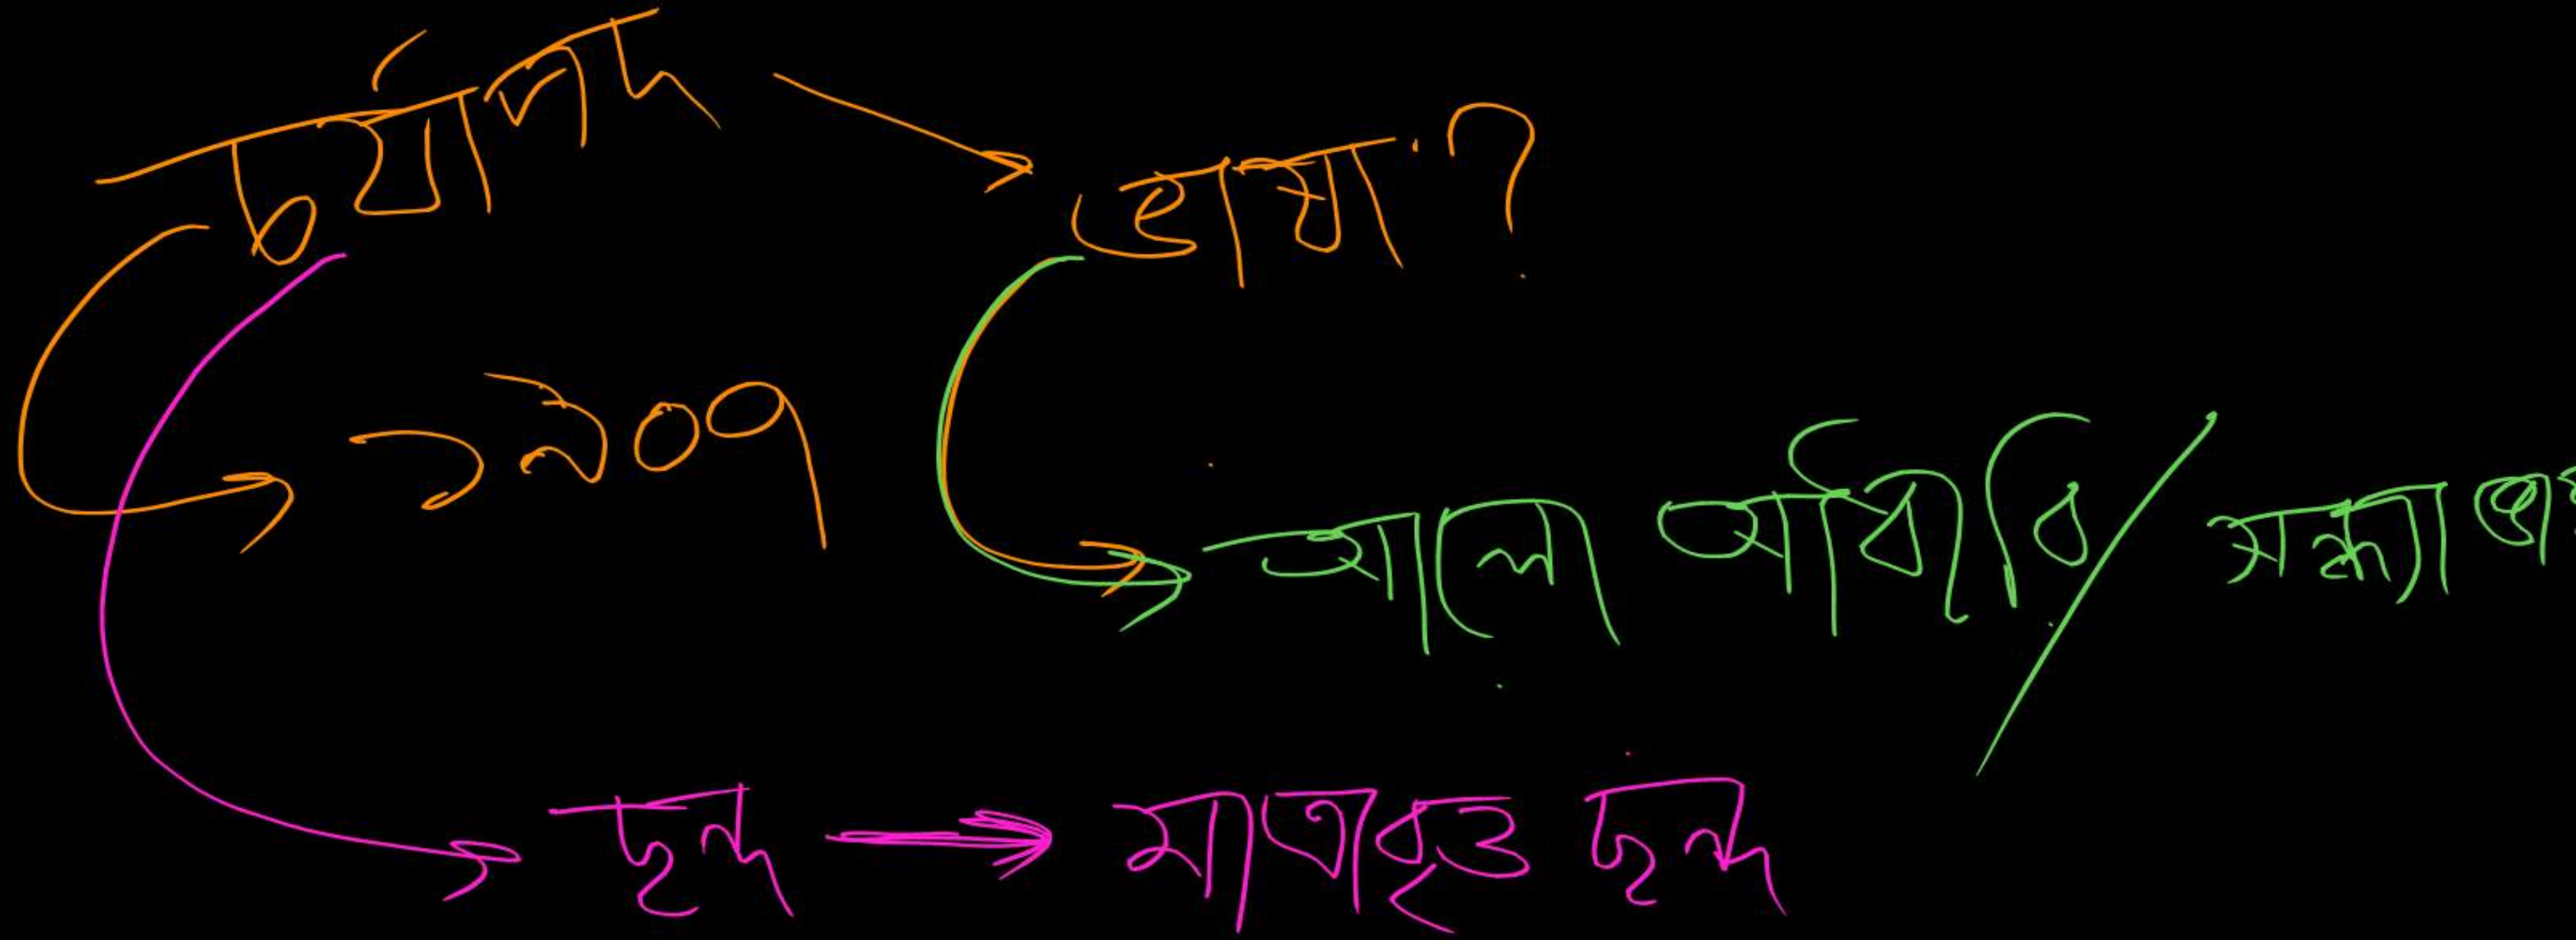 চর্যাপদ → ভাষা?
১৯০৭
আলো আঁধারি / সন্ধ্যা
ছন্দ → মাত্রাবৃত্ত ছন্দ